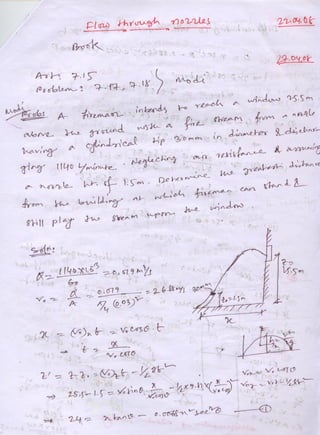 Flow through nozzles 22.04.08
Book
27.04.08
Art: 7.15
Problem: 7.17, 7.18 } Modi
Modi
Prob: A fireman intends to reach a window 25.5m
above the ground with a fire stream, from a nozzle
having a cylindrical tip 30mm in diameter & dischar-
ging 1140 L/minute. Neglecting air resistance & assuming
a nozzle ht. of 1.5m. Determine the greatest distance
from the building at which fireman can stand &
still play the stream upon the window.
Soln:
Q = = 0.019 m³/s
V₀ = Q/A = 0.019 / π/4 (0.03)² = 26.8
x = (V₀)ₓ t = V₀ cosθ t
→ t = x / V₀ cosθ
z' = z - z₀ = t - 1/2 gt²
→ 25.5 - 1.5 = V₀ sinθ
→ 24 = x tanθ - sec²θ — ①
z₀ = 1.5m
x